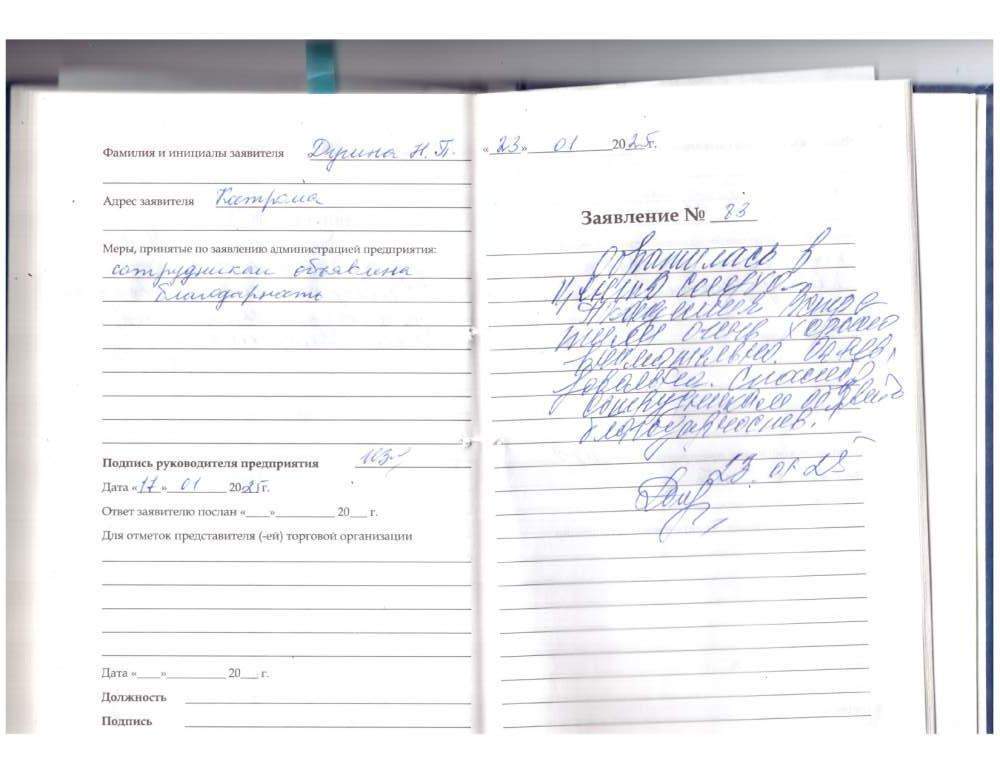 Фамилия и инициалы заявителя Дурина Н.П.
Адрес заявителя Кострома
Меры, принятые по заявлению администрацией предприятия:
сотрудникам объявлена
благодарность
Подпись руководителя предприятия
Дата «17» 01 2025г.
Ответ заявителю послан «___»__________ 20___ г.
Для отметок представителя (-ей) торговой организации
Дата «____»__________ 20___ г.
Должность
Подпись
«23» 01 2025г.
Заявление № 23
обратилась в
очень хорошо
внимательно.
Спасибо
сотрудникам объявить
благодарность.
23.01.25